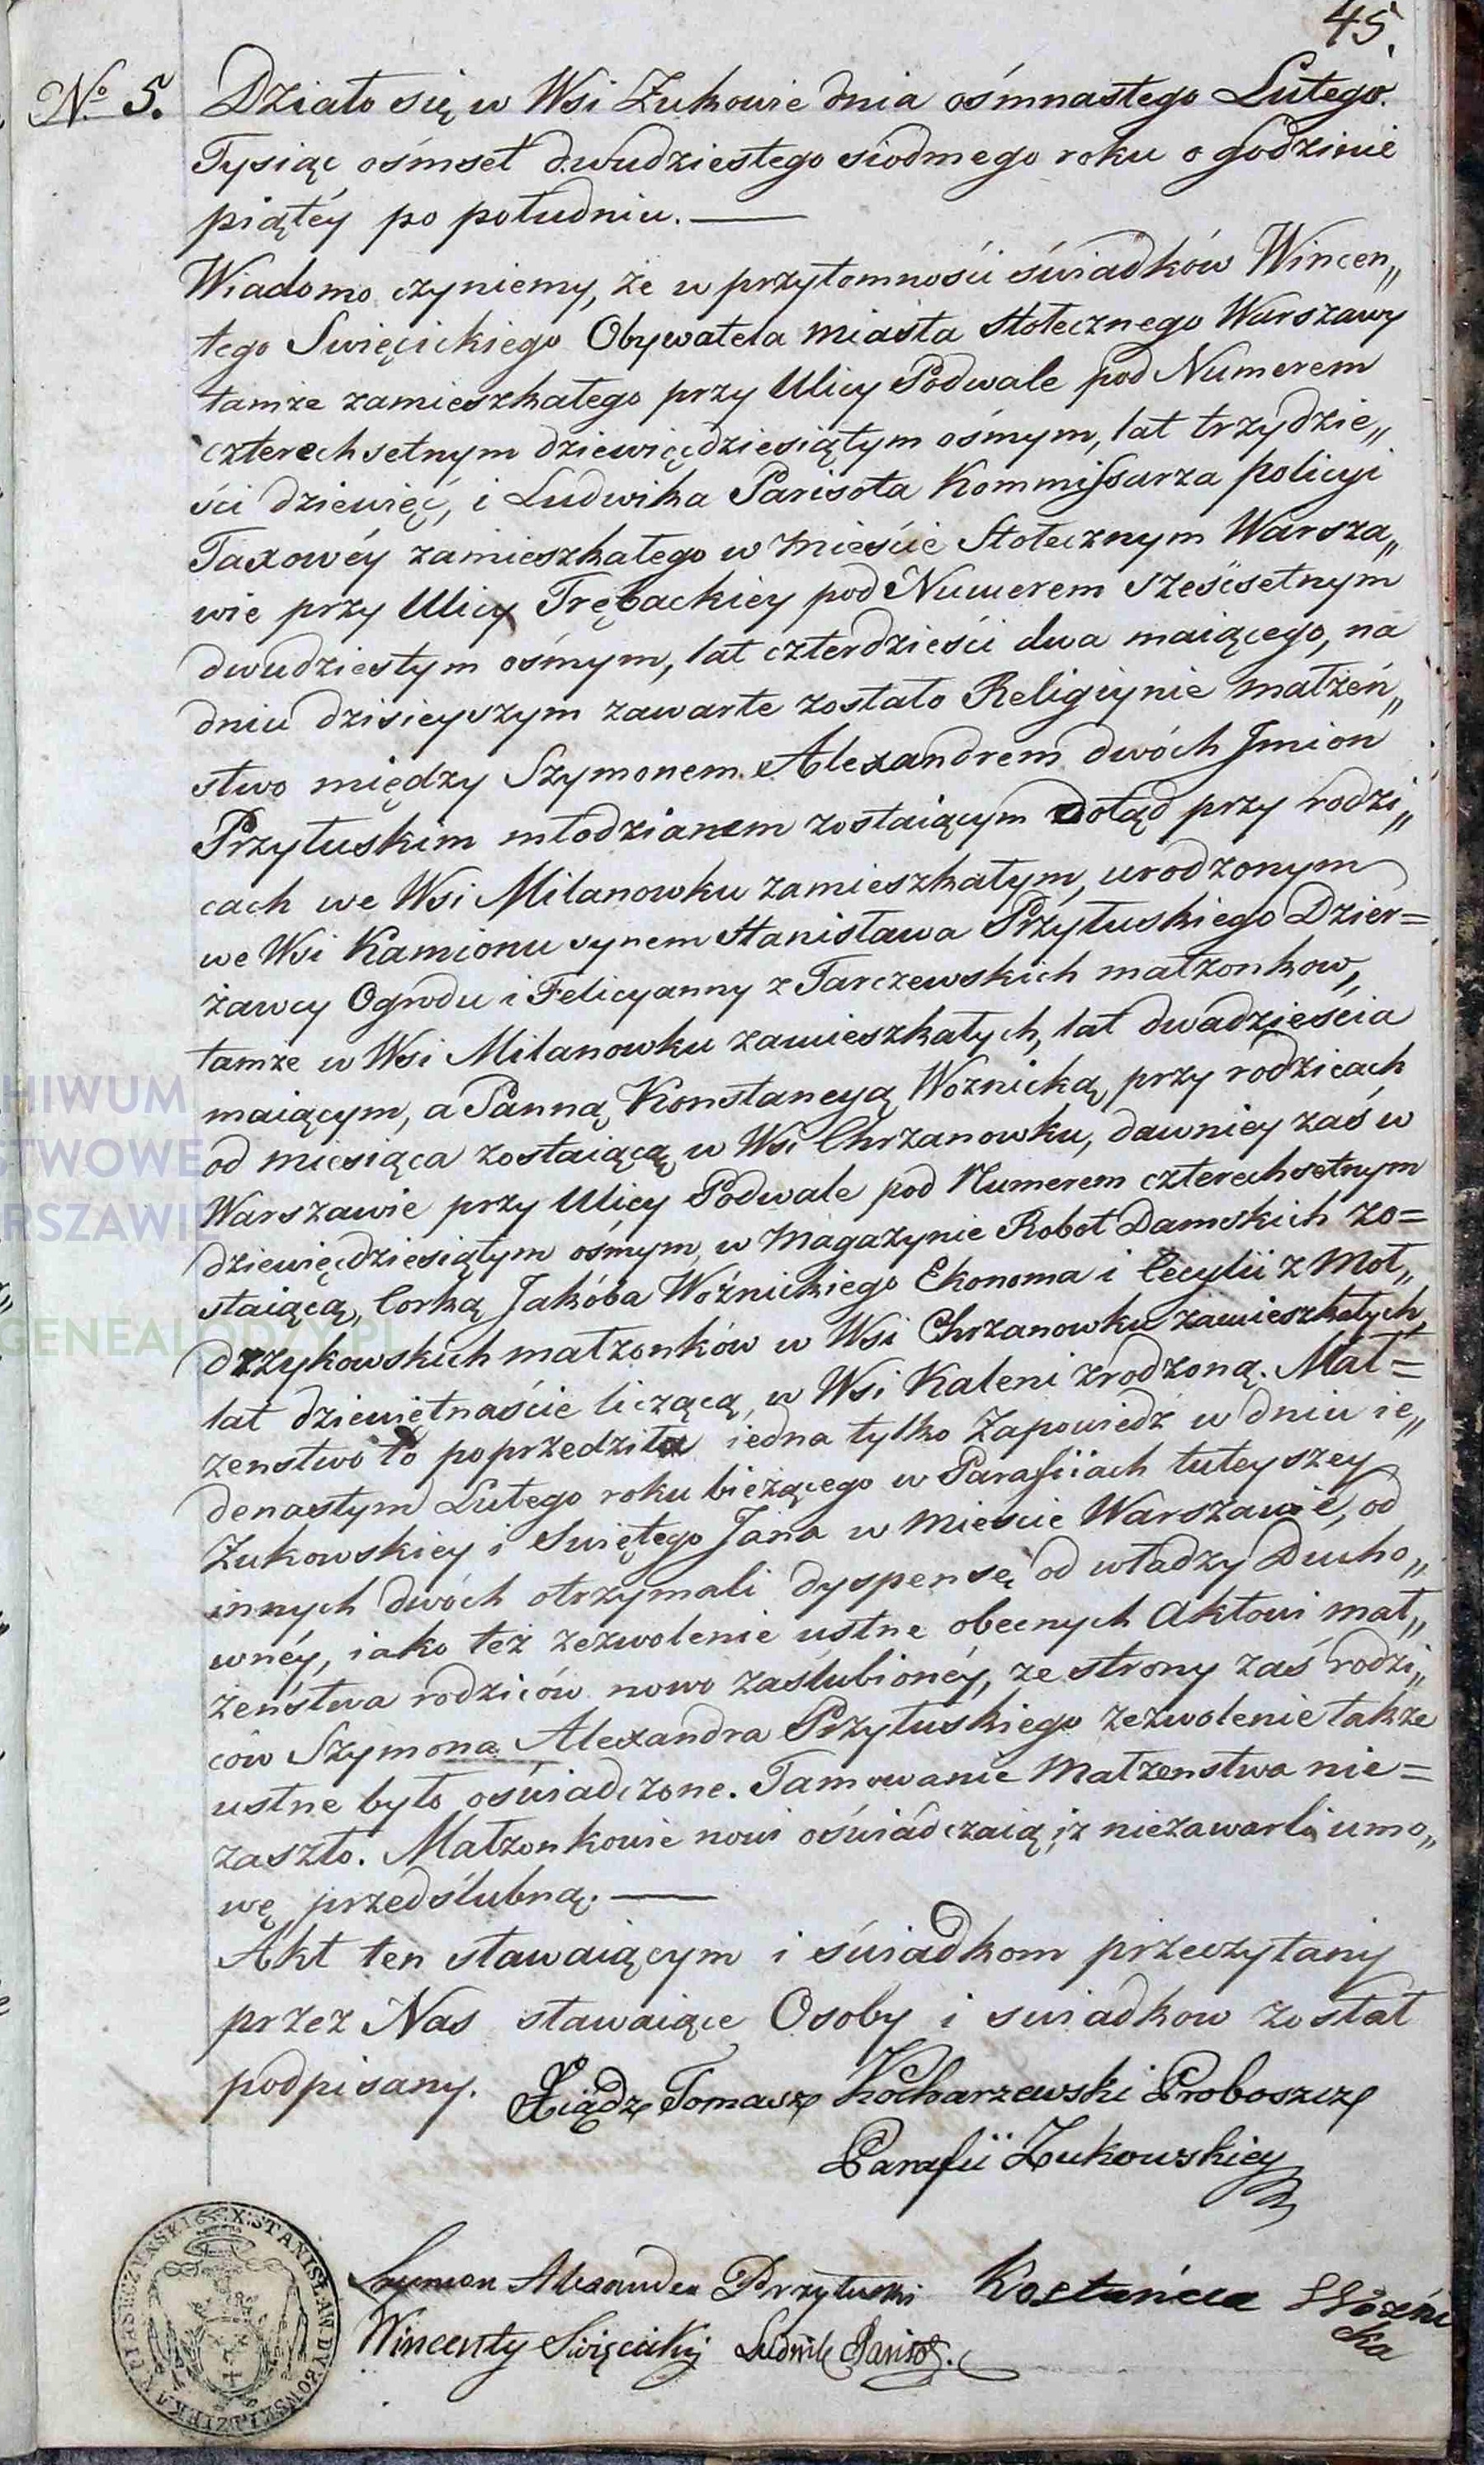 45.
No 5. Działo się w Wsi Zukowie dnia ośmnastego Lutego.
Tysiąc ośmset dwudziestego siodmego roku o godzinie
piątéy po południu. —
Wiadomo czyniemy, że w przytomności świadków Wincen„
tego Swięcickiego Obywatela miasta stołecznego Warszawy
tamże zamieszkałego przy Ulicy Podwale pod Numerem
czterechsetnym dziewięcdziesiątym ośmym, lat trzydzie„
ści dziewięć, i Ludwika Parisota Kommissarza policyi
Taxowéy zamieszkałego w mieście Stołecznym Warsza„
wie przy Ulicy Trębackiey pod Numerem sześcsetnym
dwudziestym ośmym, lat czterdzieści dwa maiącego, na
dniu dzisieyszym zawarte zostało Religiynie małżeń„
stwo między Szymonem Alexandrem dwóch Jmion
Przyłuskim młodzianem zostaiącym dotąd przy rodzi„
cach we Wsi Milanowku zamieszkałym, urodzonym
we Wsi Kamionu synem Stanisława Przyłuskiego Dzier=
żawcy Ogrodu i Felicyanny z Tarczewskich małzonkow,
tamże w Wsi Milanowku zamieszkałych, lat dwadzieścia
maiącym, a Panną Konstancyą Woznicką przy rodzicach
od miesiąca zostaiącą w Wsi Chrzanowku, dawniey zaś w
Warszawie przy Ulicy Podwale pod Numerem czterechsetnym
dziewięcdziesiątym ośmym, w magazynie Robot Damskich zo=
staiącą, Corką Jakóba Woźnickiego Ekonoma i Cecylii z Moł„
drzykowskich małzonków w Wsi Chrzanowku zamieszkałych,
lat dziewiętnaście liczącą, w Wsi Kaleni zrodzoną. Mał=
zenstwo to poprzedziła iedna tylko Zapowiedź w dniu ie„
denastym Lutego roku bieżącego w Parafiiach tuteyszey
Zukowskiey i Swiętego Jana w mieście Warszawie, od
innych dwóch otrzymali dyspensę od władzy Ducho„
wnéy, iako też zezwolenie ustne obecnych Aktowi mał„
żeństwa rodziców nowo zaślubionéy, ze strony zaś rodzi„
ców Szymona Alexandra Przyłuskiego zezwolenie także
ustne było oświadczone. Tamowanie Małzenstwa nie=
zaszło. Małzonkowie nowi oświadczaią iz niezawarli umo„
wę przedślubną. —
Akt ten stawaiącym i świadkom przeczytany
przez Nas stawaiące Osoby i swiadkow został
podpisany. Xiądz Tomasz Kocharzewski Proboszcz
Parafii Zukowskiey
Szymon Alexander Przyłuski Kostańcia Woźni
cka
Wincenty Swięcicki Ludwik Parisot.
X: STANISŁAW DYBOWSKI DZIEKAN PIASECZYNSKI
HIWUM
STWOWE
RSZAWIE
GENEALODZY.PL